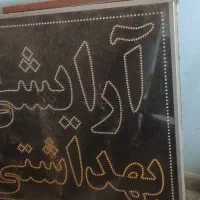 آرایشی
بهداشتی